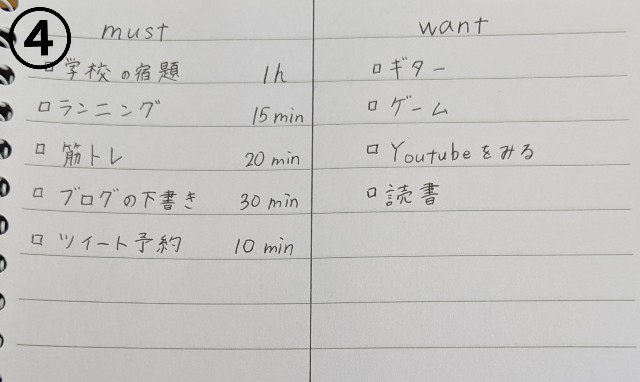 ④
must
□ 学校の宿題 1h
□ ランニング 15 min
□ 筋トレ 20 min
□ ブログの下書き 30 min
□ ツイート予約 10 min
want
□ ギター
□ ゲーム
□ Youtubeをみる
□ 読書